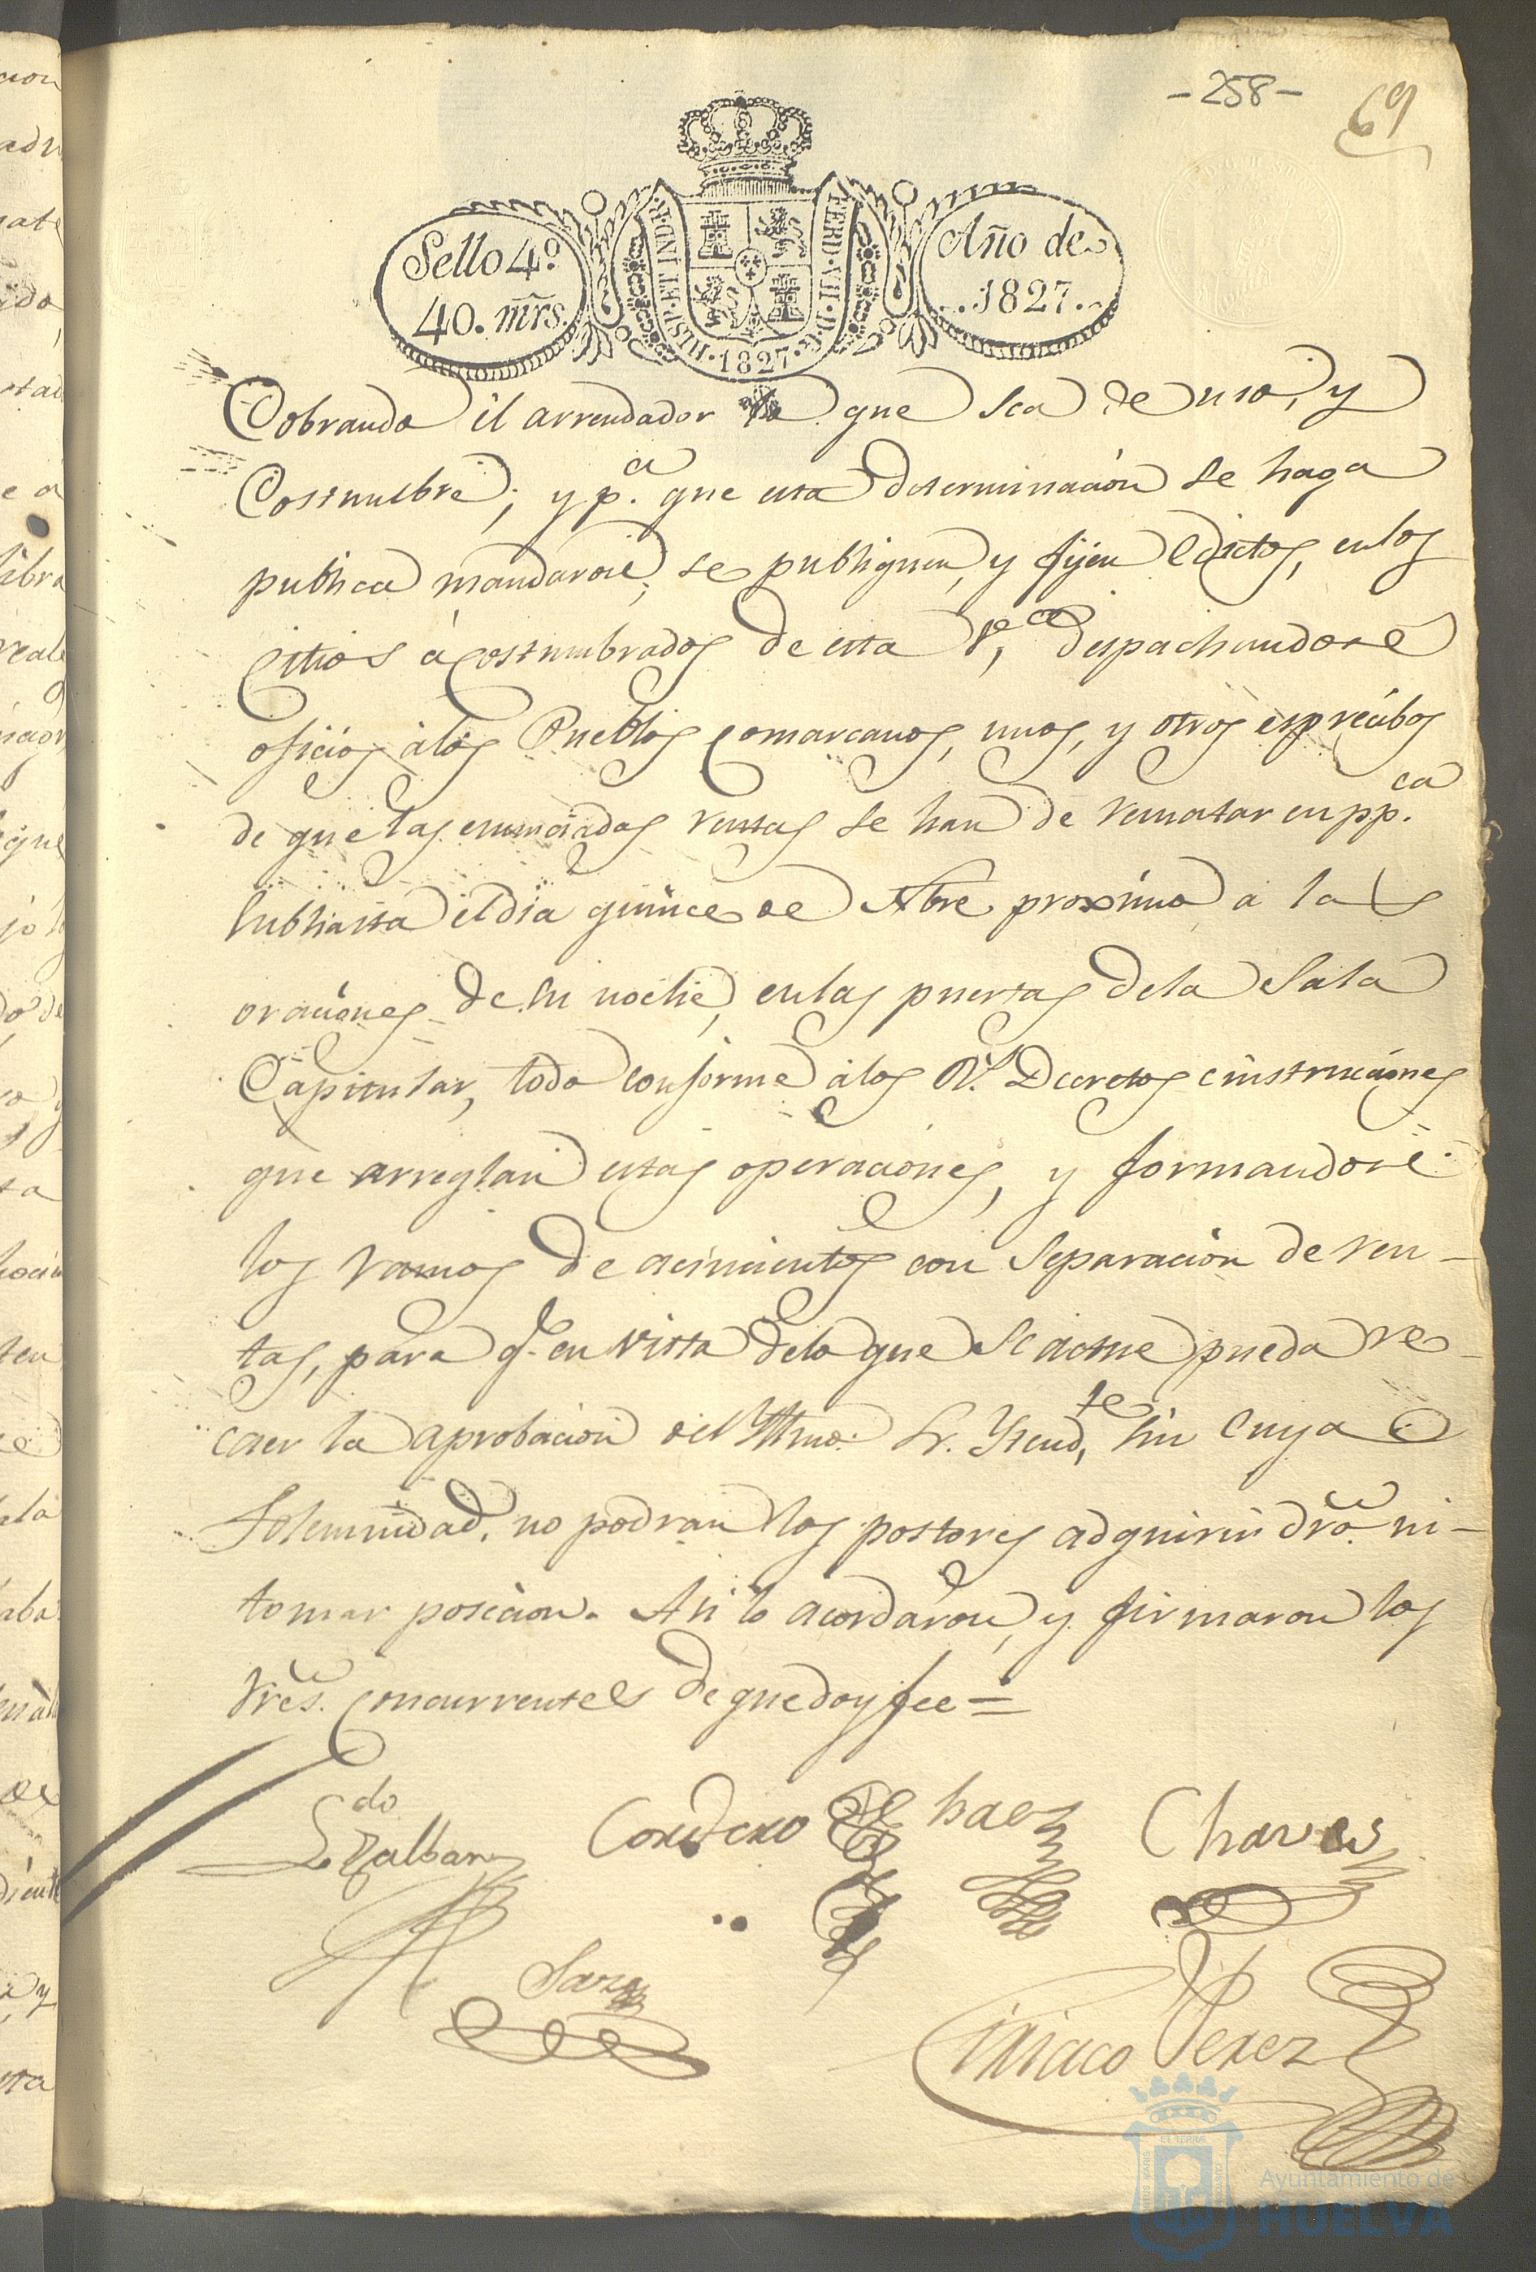 -258-
69
Sello 4º
40. mrs.
HISP. ET IND. R.
FERD. VII. D. G.
1827
Año de
1827.
Cobrando el arrendador lo que sea de uso, y
Costumbre; y p.ª que esta determinacion se haga
publica mandaron, se publiquen, y fijen Edictos, en los
citios acostumbrados de esta V.ª despachandose
oficios a los Pueblos comarcanos, unos, y otros esprecibos
de que las enunciadas rentas se han de rematar en pp.ca
Subhasta el dia quince de Nbre proximo a las
oraciones de su noche, en las puertas de la Sala
Capitular, todo conforme a los R.s Decretos e instruciones
que arreglan estas operaciones, y formandose
los ramos de acimientos con separacion de ren-
tas, para q.e en vista de lo que se actue pueda re-
caer la aprobacion del Yltmo. Sr. Ytend.te sin cuya
Solemnidad, no podran los postores adquirir dro. ni-
tomar posecion. Asi lo acordaron, y firmaron los
Sres. Concurrentes de que doy fee =
L.do Galban
Cordero
Chaves
Ciriaco Perez
Ayuntamiento de
HUELVA